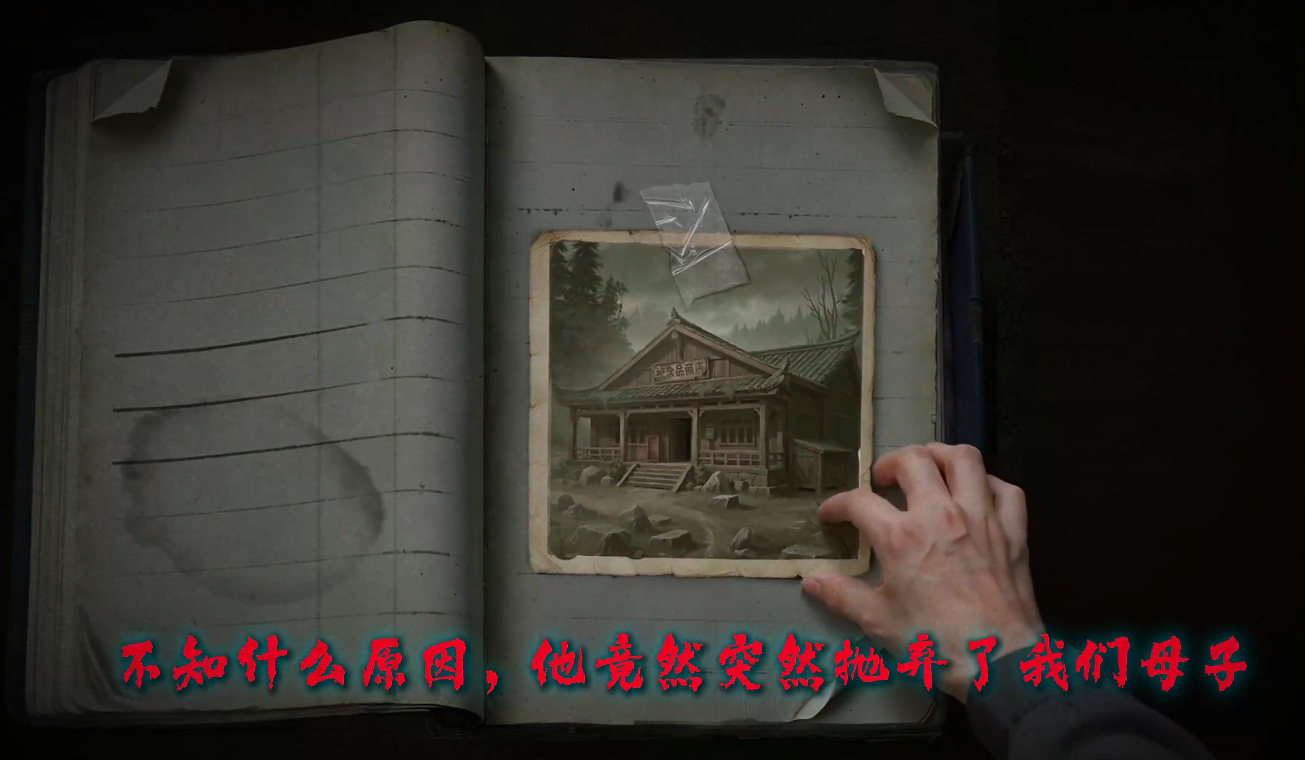 不知什么原因，他竟然突然抛弃了我们母子